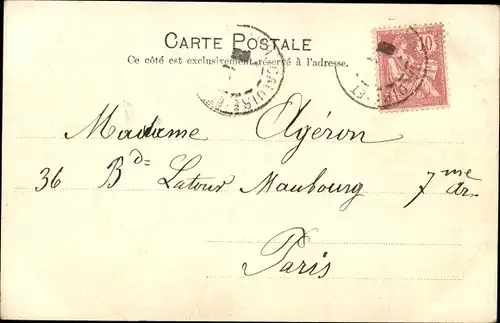 CARTE POSTALE
Ce côté est exclusivement réservé à l'adresse.
10
Madame Agéron
36 Bd= Latour Maubourg 7me Ar.
Paris